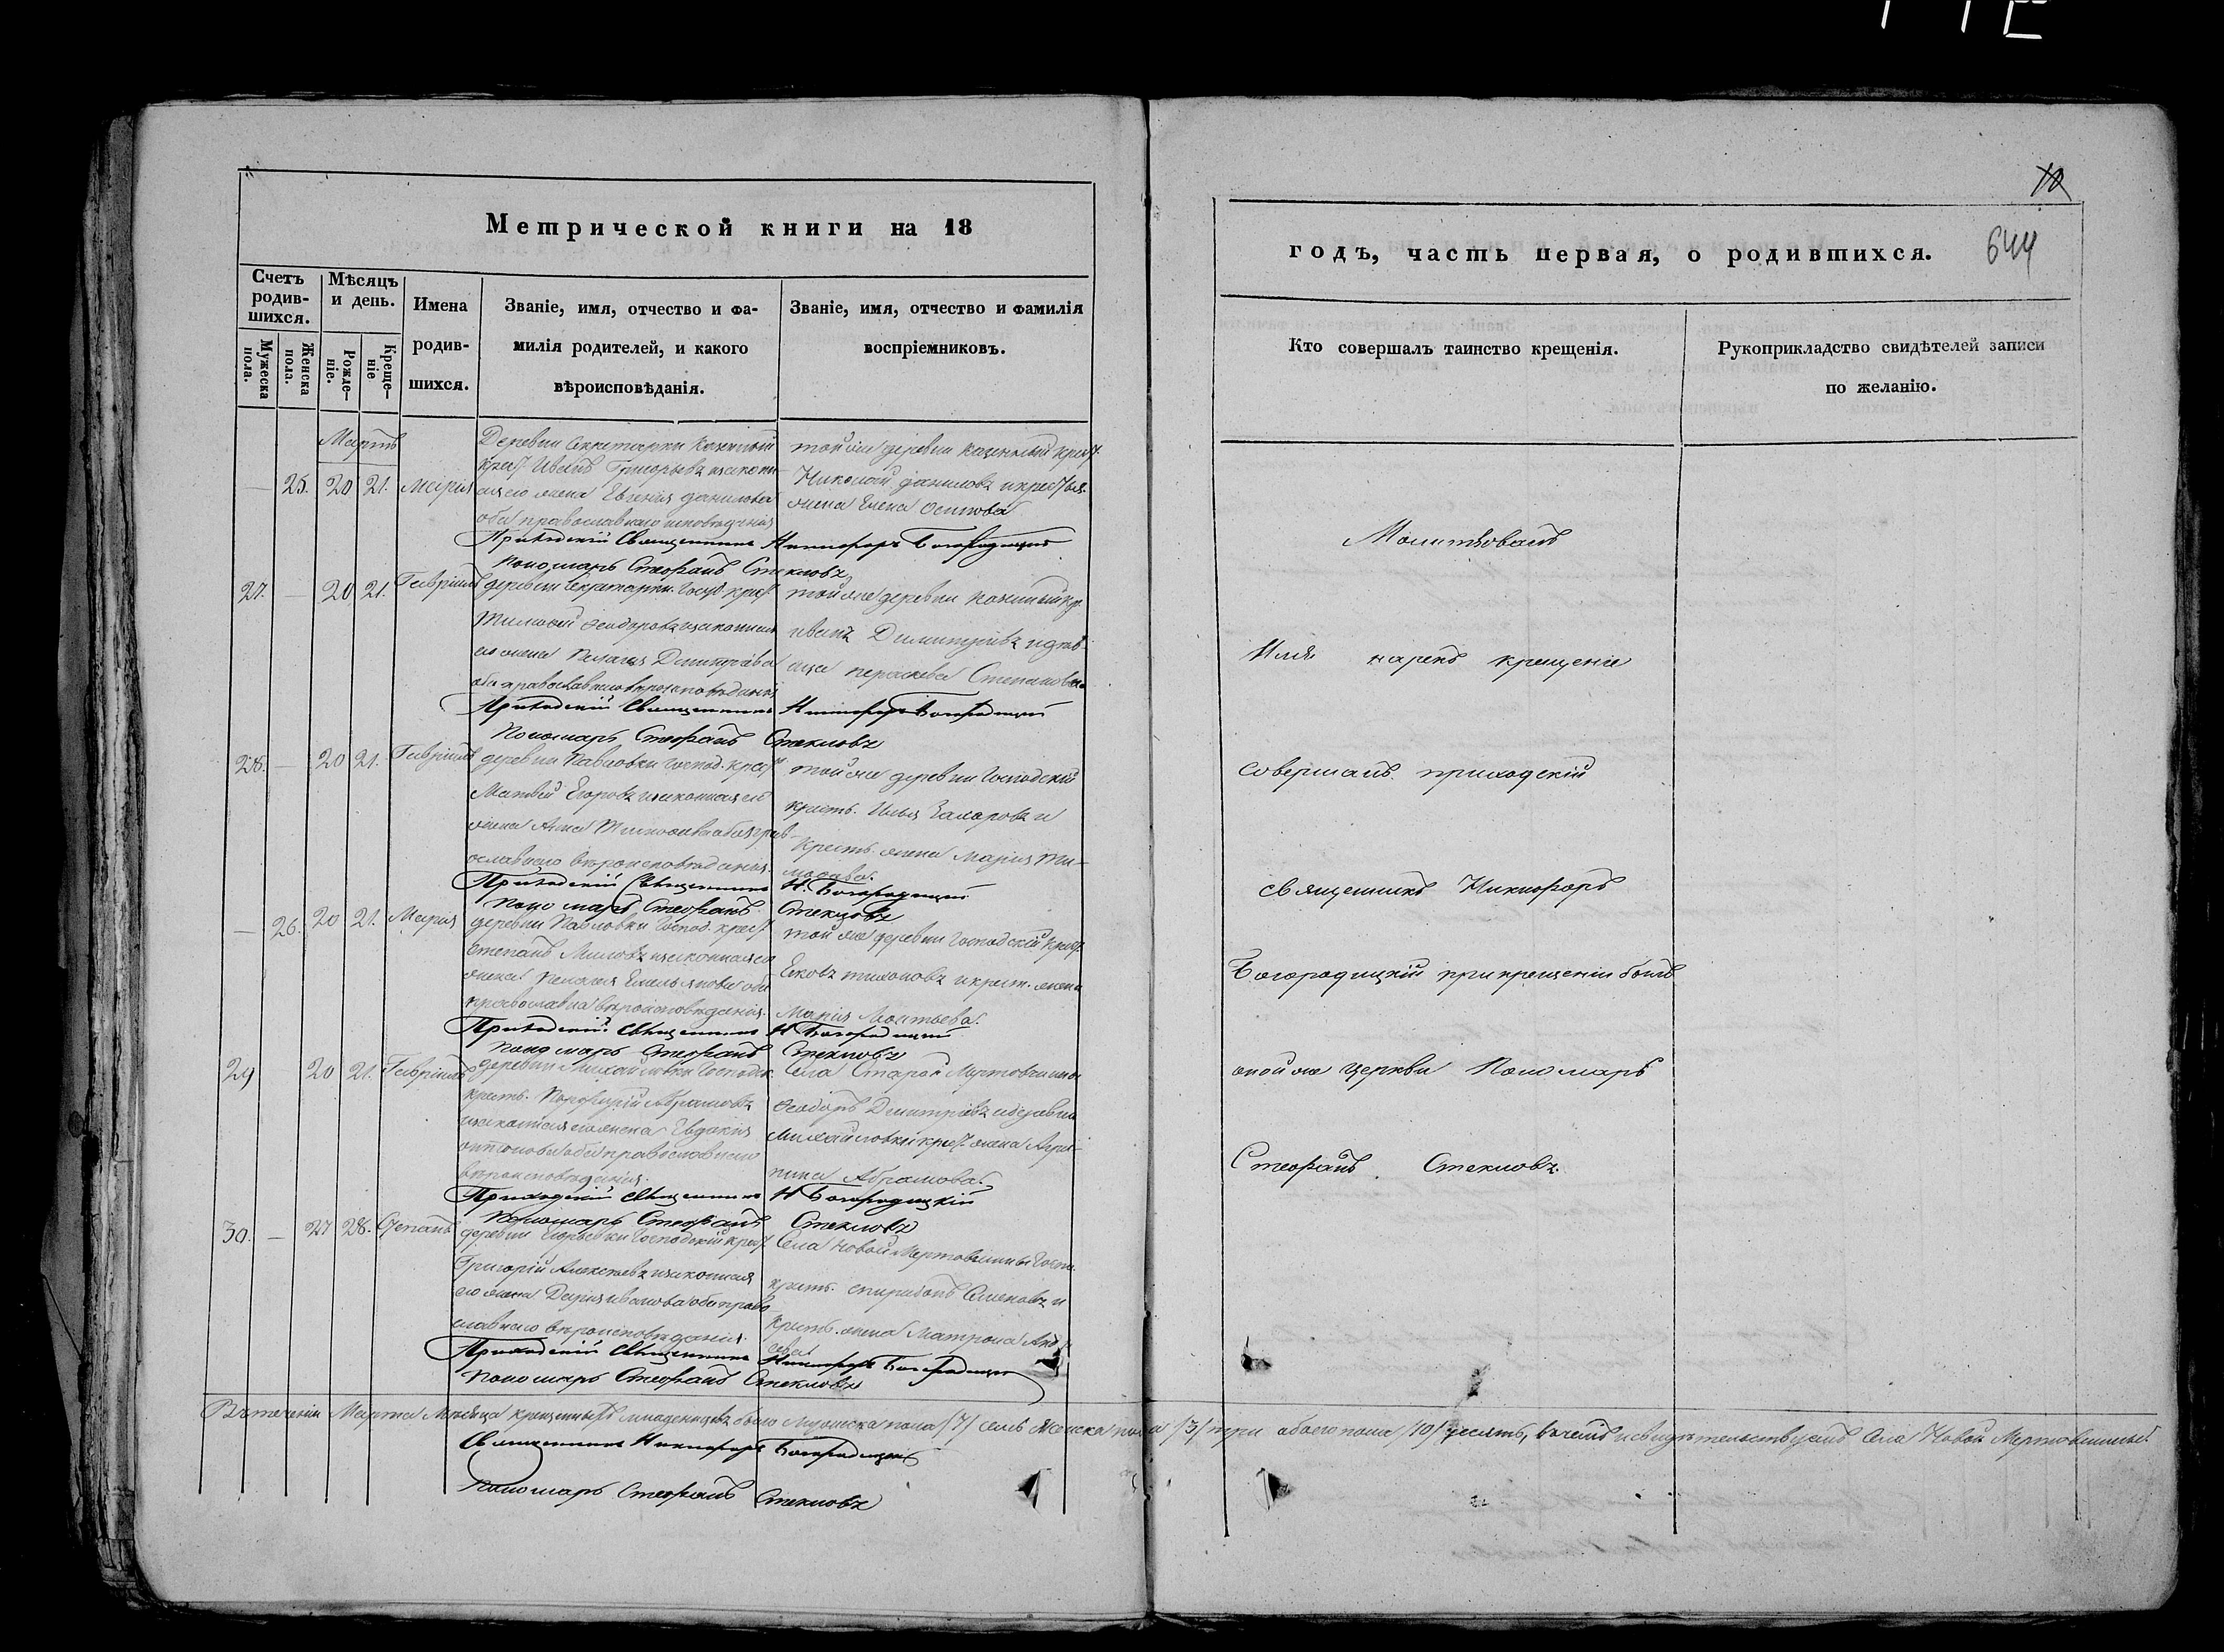 10
644
Метрической книги на 18
годъ, часть первая, о родившихся.
Счетъ родив-шихся.
Мужеска пола.
Женска пола.
Мѣсяцъ и день.
Рожде-ніе.
Креще-ніе
Имена
родив-
шихся.
Званіе, имя, отчество и фа-
милія родителей, и какого
вѣроисповѣданія.
Званіе, имя, отчество и фамилія
воспріемниковъ.
Кто совершалъ таинство крещенія.
Рукоприкладство свидѣтелей записи
по желанію.
Мартъ
— 25. 20 21. Марія
Деревни Секретарки казенный
крест. Иванъ Григорьевъ изаконн
ая его жена Евгенія Данилова
оба православнаго исповѣданія
тойже деревни казенный крест.
Николай Даниловъ и крестья.
жена Елена Осипова
Приходскій Священникъ Никифоръ Богородицкій
Пономарь Стефанъ Стекловъ
27. — 20 21. Гавріилъ
деревни Секретарки. Госуд. крест.
Тимофей Феодоровъ изаконная
его жена Пелагія Дмитріева
оба православнаго вѣроисповѣданія
тойже деревни казенный кр.
Иванъ Димитріевъ и дѣв
ица Параскева Степанова
Приходскій Священникъ Никифоръ Богородицкій
Пономарь Стефанъ Стекловъ
28. — 20 21. Гавріилъ
деревни Павловки господ. крест.
Матвей Егоровъ изаконная его
жена Анна Тимофеева оба прав-
ославнаго вѣроисповѣданія.
тойже деревни Господскій
крестъ. Илья Захаровъ и
крестъ. жена Марія Ти-
мофеева.
Приходскій Священникъ Н. Богородицкій
Пономарь Стефанъ Стекловъ
— 26. 20 21. Марія
деревни Павловки Господ. крест.
Степанъ Миловъ изаконная его
жена Пелагія Емельянова оба
православна вѣроисповѣданія.
той же деревни Господскій крест.
Яковъ Тихоновъ и крест. жена
Марія Леонтьева.
Приходскій Священникъ Н Богородицкій
Пономарь Стефанъ Стекловъ
29 20 21. Гавріилъ
деревни Михайловки Господск.
крестъ. Порфирій Абрамовъ
изаконная его жена Евдокія
Антонова оба православнаго
вѣроисповѣданія.
Села Старой Мертовщины
Феодоръ Дмитріевъ и деревни
Михайловки крест. жена Агрип-
пина Абрамова.
Приходскій Священникъ Н Богородицкій
Пономарь Стефанъ Стекловъ
30. — 27 28. Степанъ
деревни Егорьевки Господскій крест.
Григорій Алексѣевъ изаконная
его жена Дарія Иванова оба право
славнаго вѣроисповѣданія.
Села Новой Мертовщины Госп.
крестъ. Спиридонъ Семеновъ и
крестъ. жена Матрона Андр
еева
Приходскій Священникъ Никифоръ Богородицкій
Пономарь Стефанъ Стекловъ
Молитвовалъ
Имя нарекъ крещеніе
совершалъ приходскій
священникъ Никифоръ
Богородицкій при крещеніи былъ
тойже церкви Пономарь
Стефанъ Стекловъ.
Въ теченіи Марта Мѣсяца крещенныхъ младенцевъ было Мужеска пола /7/ семь Женска пола /3/ три обоего пола /10/ десять, въ чемъ и свидѣтельствуемъ Села Новой Мертовщины
Священникъ Никифоръ Богородицкій
Пономарь Стефанъ Стекловъ